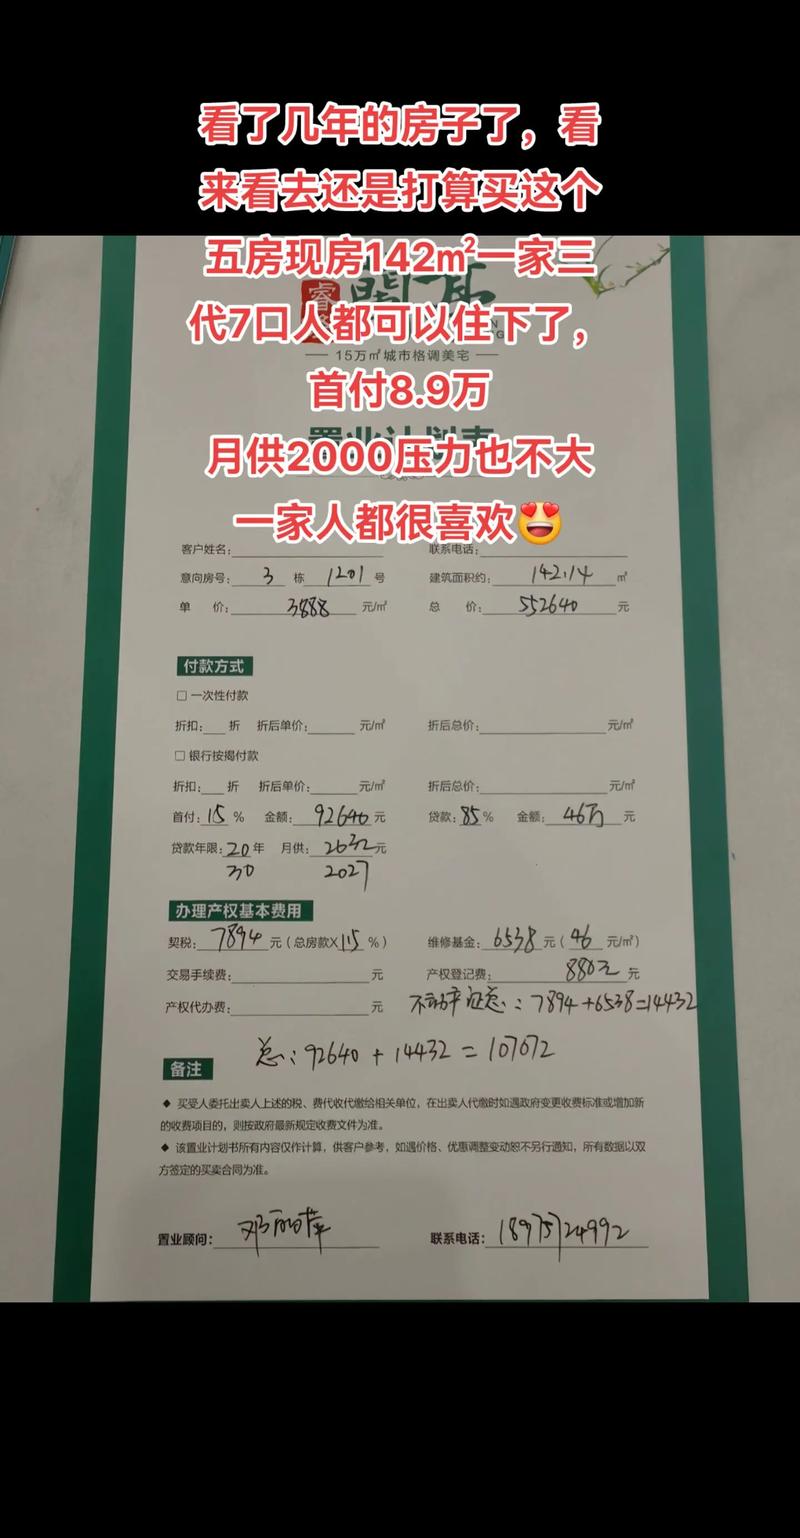 看了几年的房子了，看
来看去还是打算买这个
五房现房142㎡一家三
代7口人都可以住下了，
首付8.9万
月供2000压力也不大
一家人都很喜欢😍
睿
15万㎡城市格调美宅
置业计划表
客户姓名： 联系电话：
意向房号： 3 栋 1201 号 建筑面积约： 142.14 ㎡
单 价： 3888 元/㎡ 总 价： 552640 元
付款方式
□ 一次性付款
折扣： 折 折后单价： 元/㎡ 折后总价： 元/㎡
□ 银行按揭付款
折扣： 折 折后单价： 元/㎡ 折后总价： 元/㎡
首付：15 % 金额： 92640 元 贷款：85 % 金额： 46万 元
贷款年限：20 年 月供： 2632 元
30 2027
办理产权基本费用
契税： 7894 元（总房款X 1.5 %） 维修基金： 6538 元（ 46 元/㎡）
交易手续费： 元 产权登记费： 880元 元
产权代办费： 元 不动产证总：7894+6538=14432
总：92640 + 14432 = 107072
备注
◆ 买受人委托出卖人上述的税、费代收代缴给相关单位，在出卖人代缴时如遇政府变更收费标准或增加新
的收费项目的，则按政府最新规定收费文件为准。
◆ 该置业计划书所有内容仅作计算，供客户参考，如遇价格、优惠调整变动恕不另行通知，所有数据以双
方签定的买卖合同为准。
置业顾问： 邓丽萍 联系电话： 18975724992